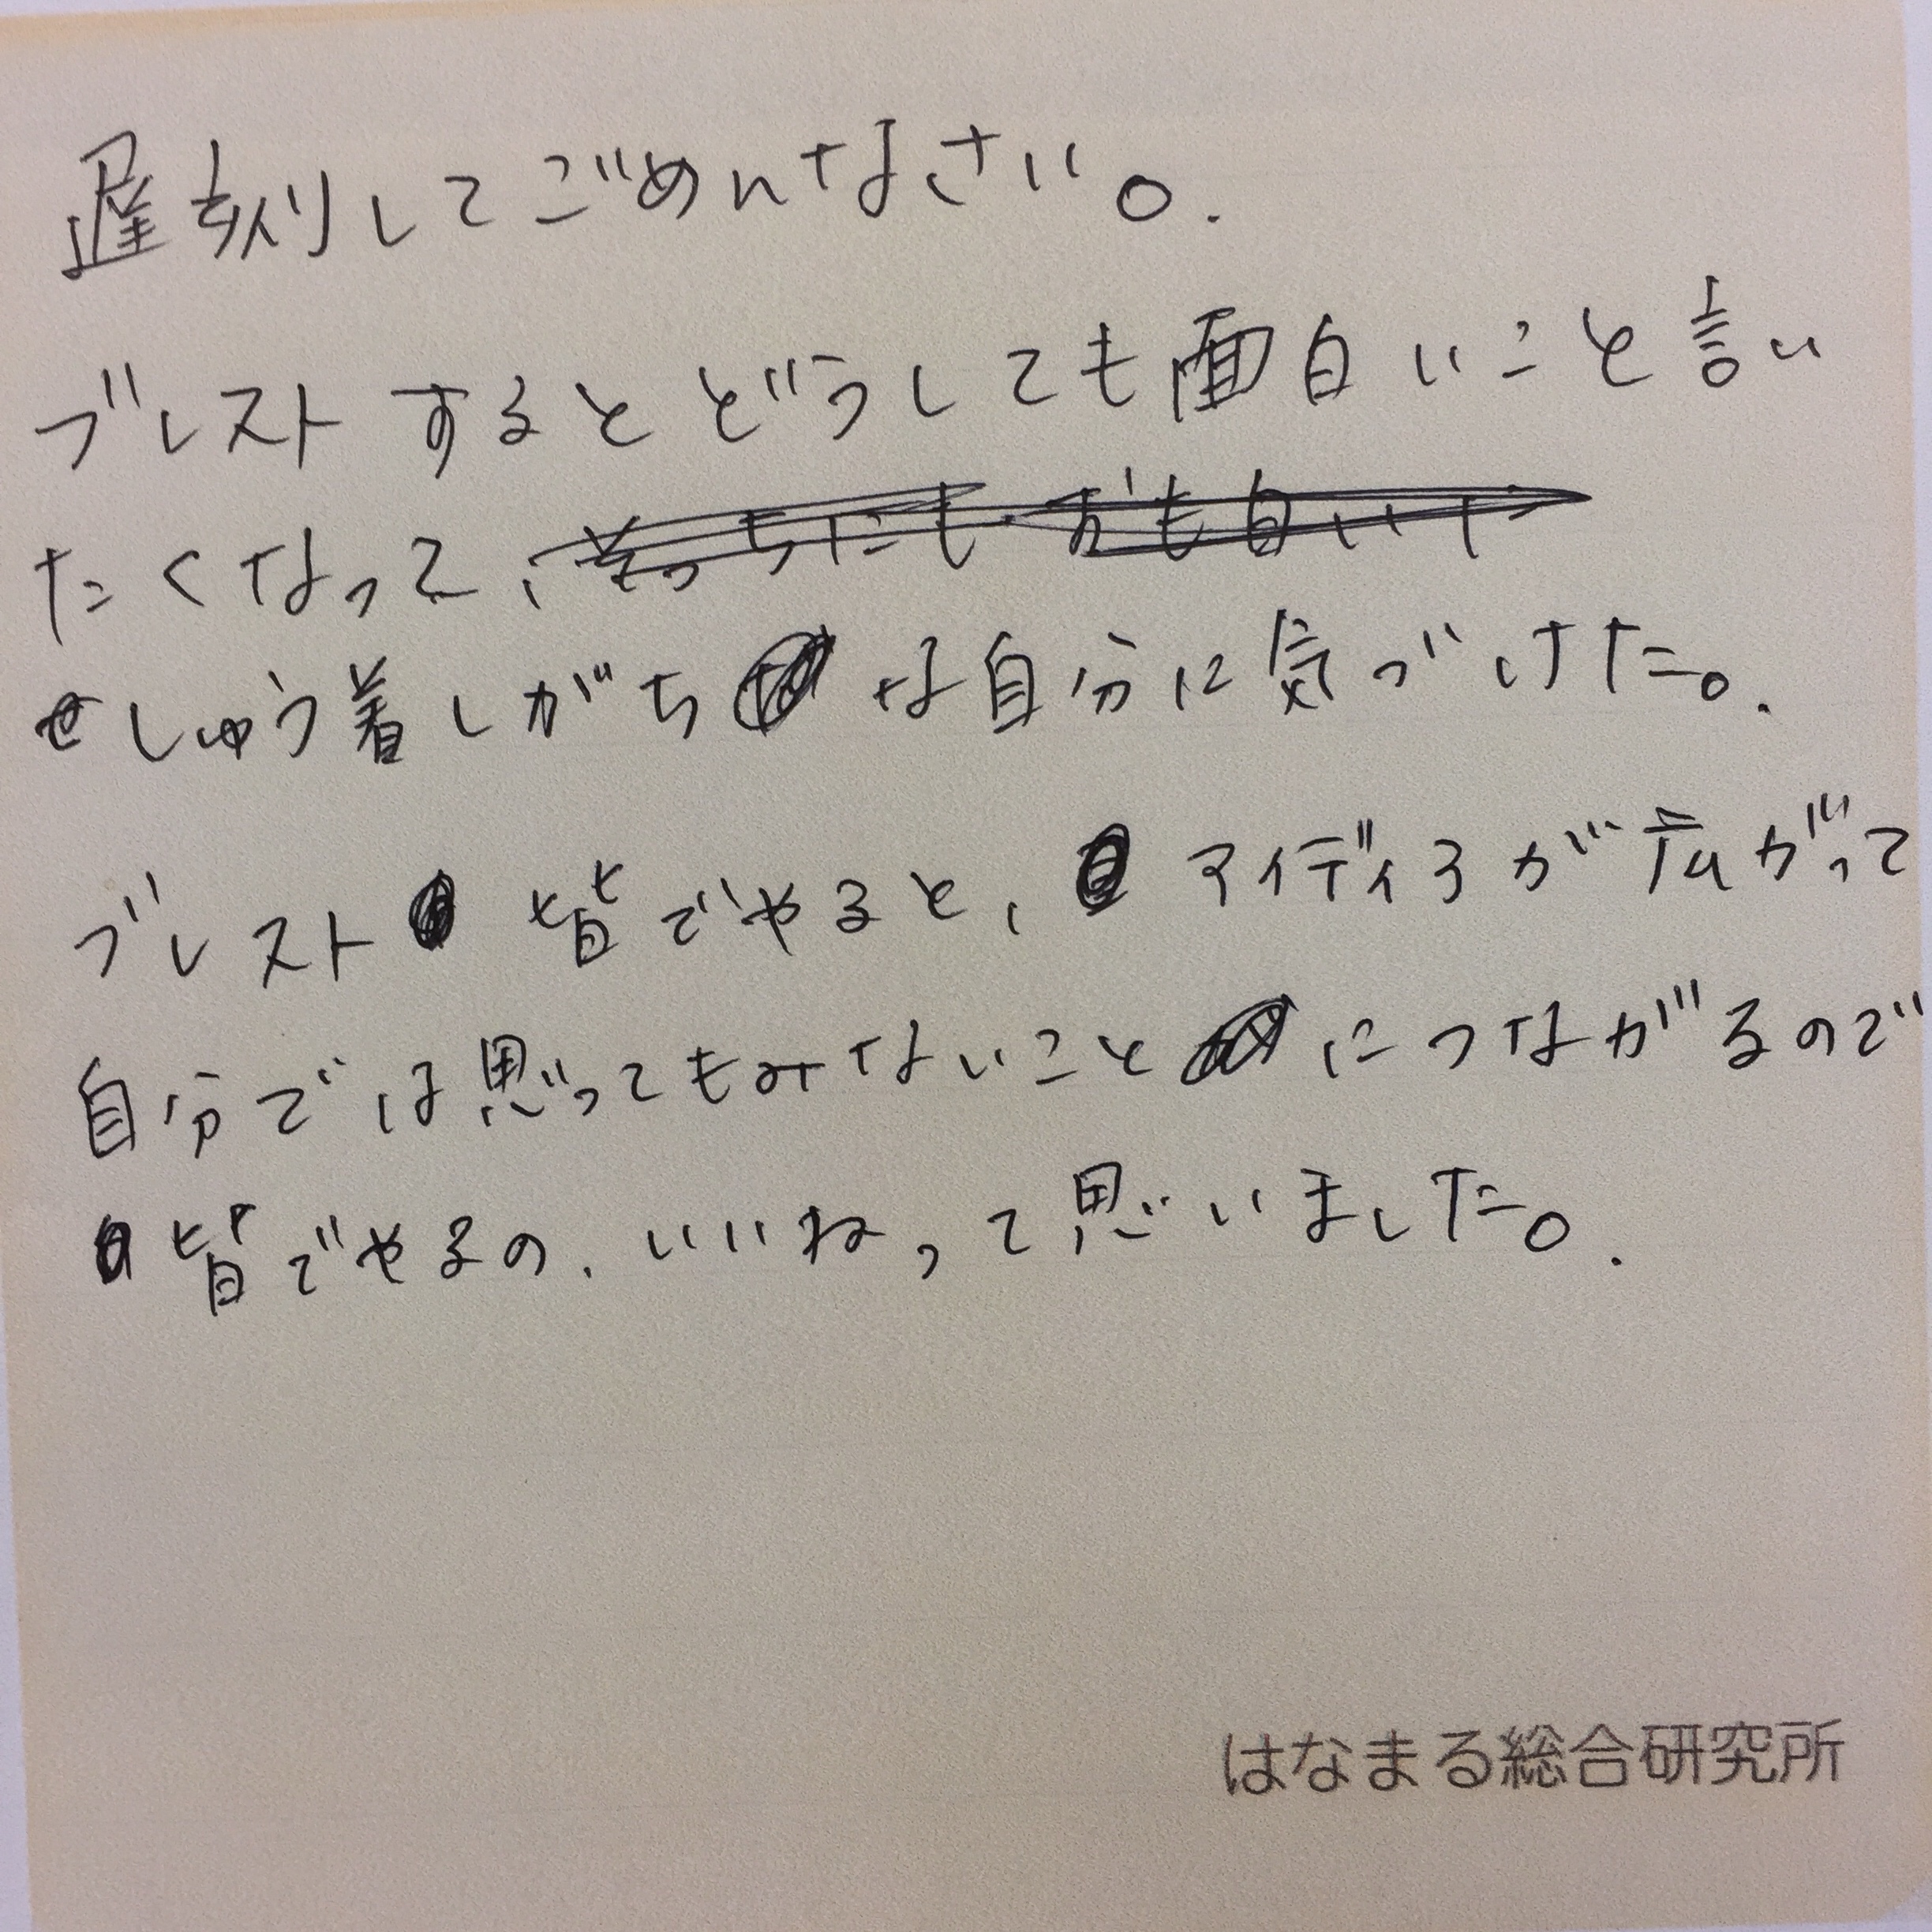 遅刻してごめんなさい。
ブレストするとどうしても面白いこと言い
たくなって、
しゅう着しがちな自分に気づけた。
ブレスト皆でやると、アイディアが広がって
自分では思ってもみないことにつながるので
皆でやるの、いいねって思いました。
はなまる総合研究所